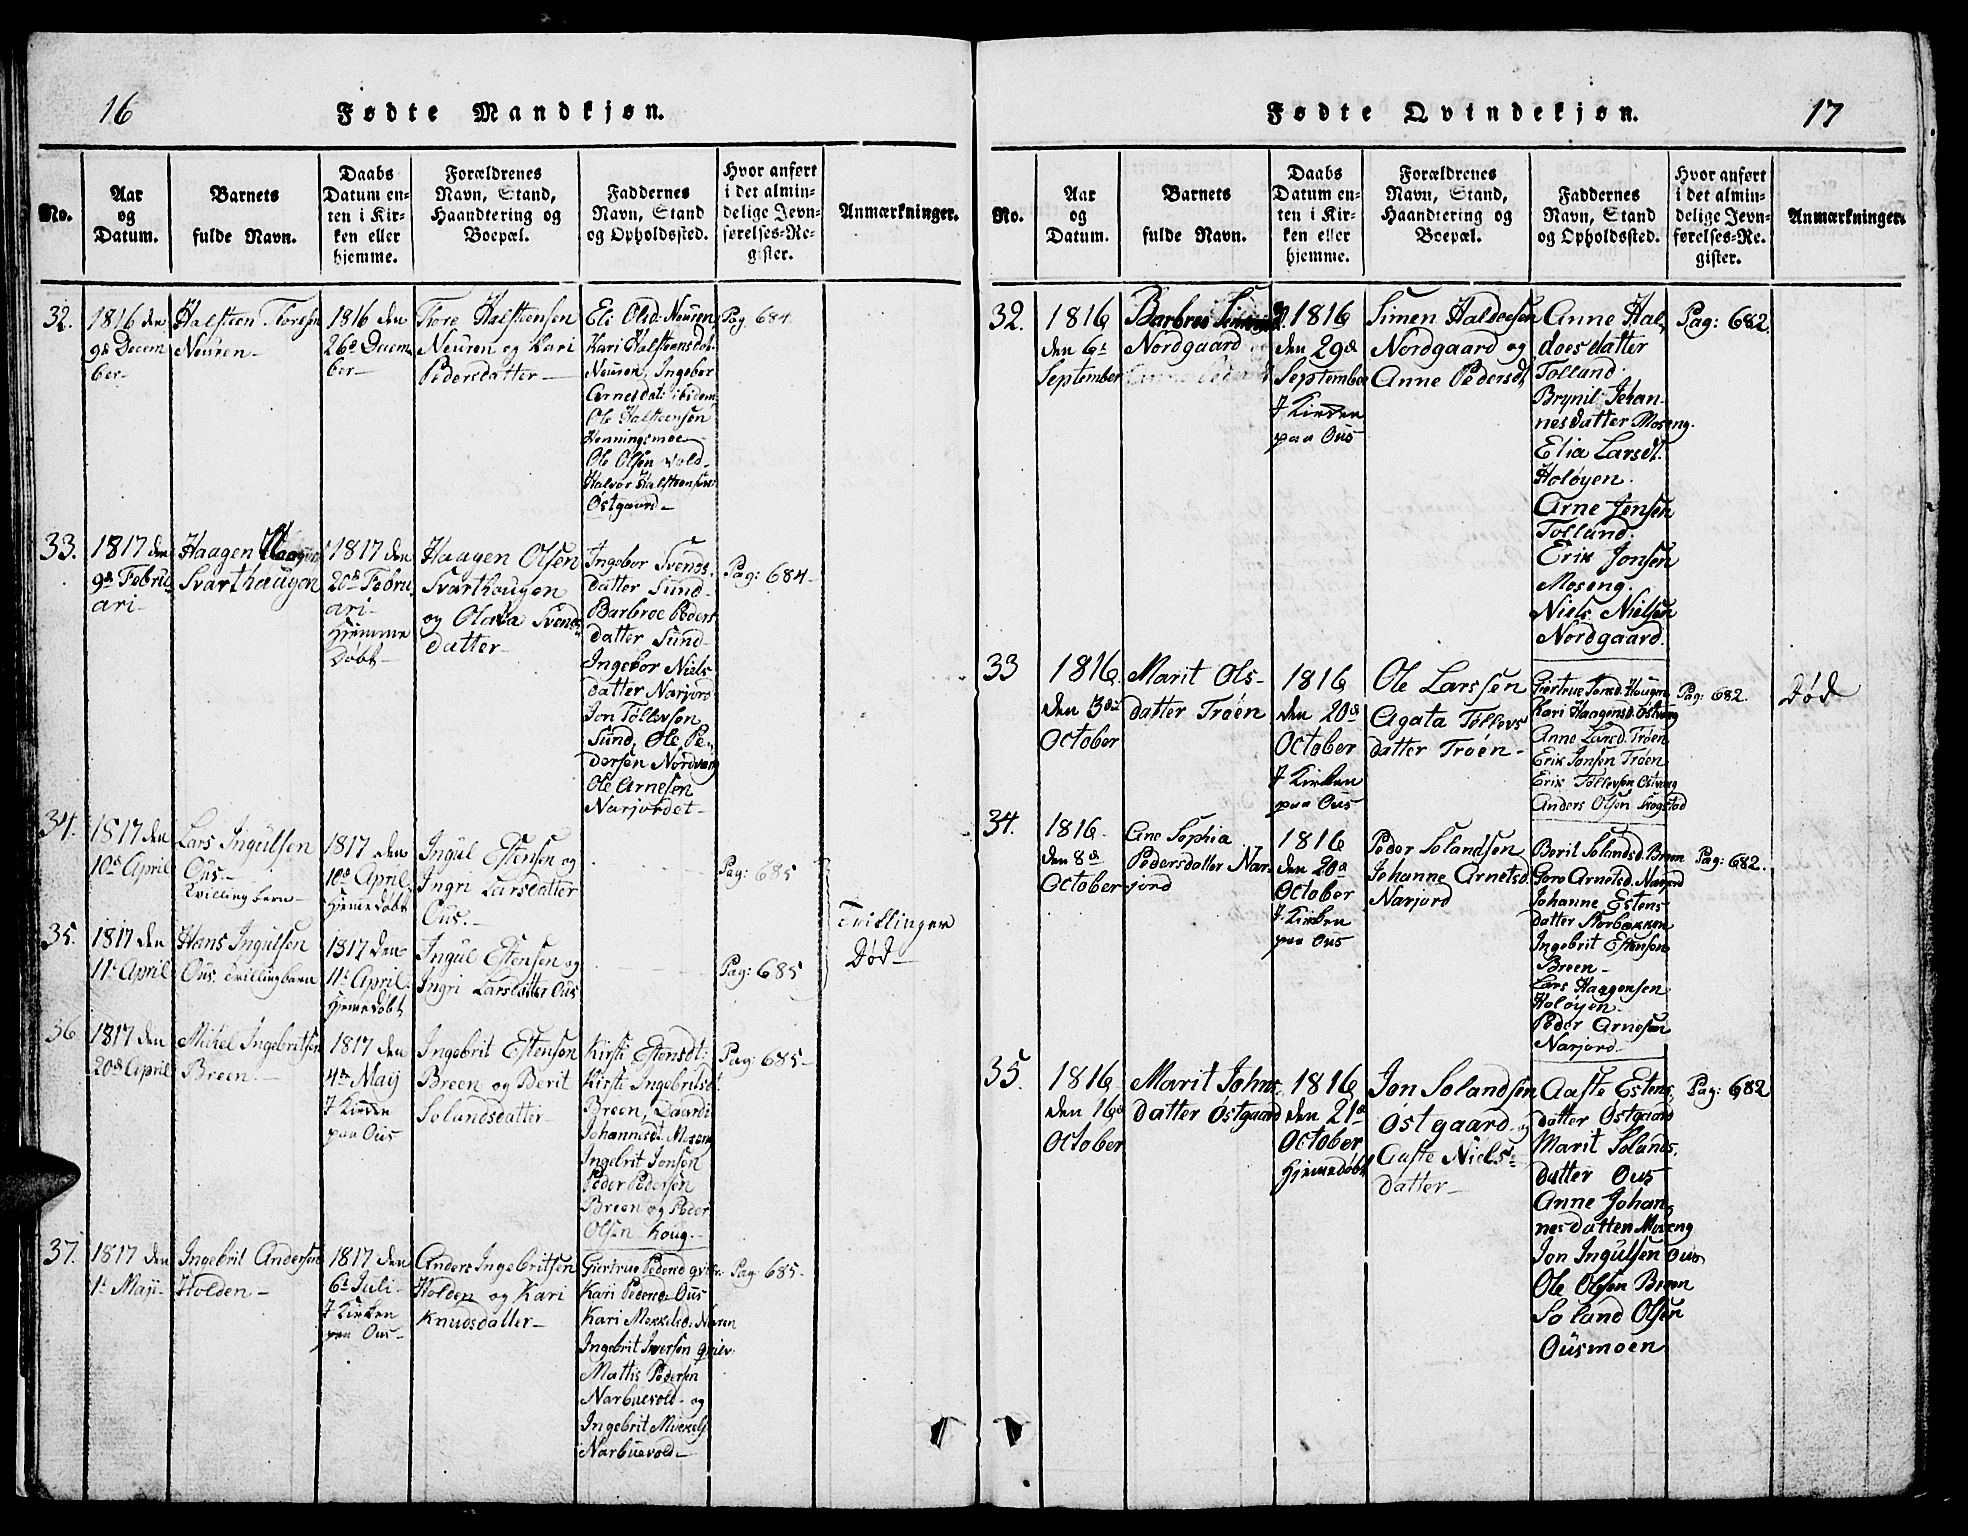 16
Fødte Mandkjøn.
No.
Aar
og
Datum.
Barnets
fulde Navn.
Daabs
Datum en-
ten i Kir-
ken eller
hjemme.
Forældrenes
Navn, Stand,
Haandtering og
Boepæl.
Faddernes
Navn, Stand
og Opholdssted.
Hvor anført
i det almin-
delige Jevn-
førelses-Re-
gister.
Anmærkninger.
32.
1816 den
9d Decem
ber
Halsteen Toresen
Neuren
1816 den
26d Decem
ber
Tore Halsteensen
Neuren og Kari
Pedersdatter
Eli Olsd: Neuren,
Kari Halsteensdat:
Neuren, Ingebor
Arnesdat: ibidem
Ole Halsteensen
Henningsmoe
Ole Olsen Vold
Halvor Halsteensen
Østgaard
Pag. 684
33.
1817 den
9d Febru
ari
Haagen Haagens
Svarthaugen
1817 den
20d Febru
ari
Hjemme
Døbt
Haagen Olsen
Svarthougen
og Olava Svends
datter
Ingebor Svends
datter Sund
Barbroe Peders
datter Sund
Ingebor Niels
datter Narjord
Jon Tollevsen
Sund, Ole Pe
dersen Nordvang
Ole Arnesen
Narjordet
Pag: 684
34.
1817 den
10d April
Lars Ingulsen
Ous
Tvilling barn
1817 den
10d April
Hjemedøbt
Ingul Estensen og
Ingri Larsdatter
Ous.
Pag: 685
35.
1817 den
11t April
Hans Ingulsen
Ous. Tvillingbarn
1817 den
11t April.
Hjemedøbt
Ingul Estensen og
Ingri Larsdatter Ous
Pag: 685
Tvillinger
Død
36
1817 den
20d April
Mikel Ingebritsen
Breen.
1817 den
4de Maij
I Kirken
paa Ous
Ingebrit Estensen
Breen og Berit
Solundsdatter
Kirsti Estensdt:
Kirsti Ingebritsdt
Breen,
Johannesdt: Moseng
Ingebrit Jonsen
Peder Pedersen
Breen og Peder
Olsen Houg.
Pag: 685
37.
1817 den
1t Maji
Ingebrit Andersen
Holden
1817 den
6t Juli
I Kirken
paa Ous
Anders Ingebritsen
Holden og Kari
Knudsdatter
Giertrue Pedersd
Kari Pedersd: Ous
Kari Mekkelsd: Neuren
Ingebrit Iversen
Mattis Pedersen
Narbuevold og
Ingebrit Mikkels
Narbuevold
Pag 685
Fødte Qvindekjøn.
17
No.
Aar
og
Datum.
Barnets
fulde Navn.
Daabs
Datum en-
ten i Kir-
ken eller
hjemme.
Forældrenes
Navn, Stand,
Haandtering og
Boepæl.
Faddernes
Navn, Stand
og Opholdssted.
Hvor anført
i det almin-
delige Jevn-
førelses-Re-
gister.
Anmærkninger.
32.
1816
den 6t
September
Barbroe Simensd.
Nordgaard
1816
den 29d
September
I Kirken
paa Ous
Simen Haldoesen
Nordgaard og
Anne Pedersdt
Anne Hal
does datter
Tolland.
Brynil Johan
nesdatter Moseng.
Elia Larsdt.
Holøyen.
Arne Jensen
Tolland.
Erik Jonsen
Moseng.
Niels Nielsen
Nordgaard.
Pag: 682
33
1816
den 3de
October
Marit Ols
datter Trøen
1816
den 20d
October
I Kirken
paa Ous
Ole Larssen
Agata Tollevs
datter Trøen
Giertrue Torsd. Hougen
Kari Haagensd. Østvang
Anne Larsd. Trøen
Erik Jonsen Trøen
Erik Tollevsen Ostvang
Anders Olsen Skogstad
Pag: 682
Død
34.
1816
den 8d
October
Ane Sophia
Pedersdatter Nar
jord
1816
den 20d
October
I Kirken
paa Ous
Peder Solandsen
Johanne Arnetsd
Narjord
Berit Solandsd. Breen
Goro Arnetsd. Narjord
Johanne Estens
datter Storbækken
Ingebrit Estensen
Breen
Lars Haagensen
Holøyen
Peder Arnesen
Narjord
Pag: 682.
35.
1816
den 16d
October
Marit Johns
datter Østgaard
1816
den 21d
October
Hjemedøbt
Jon Solandsen
Ostgaard og
Aaste Niels
datter
Aaste Estens
datter Østgaard
Marit Solands
datter Ous
Anne Johan
nesdatten Moseng
Jon Ingulsen Ous
Ole Olsen Breen
Soland Olsen
Ousmoen
Pag: 682